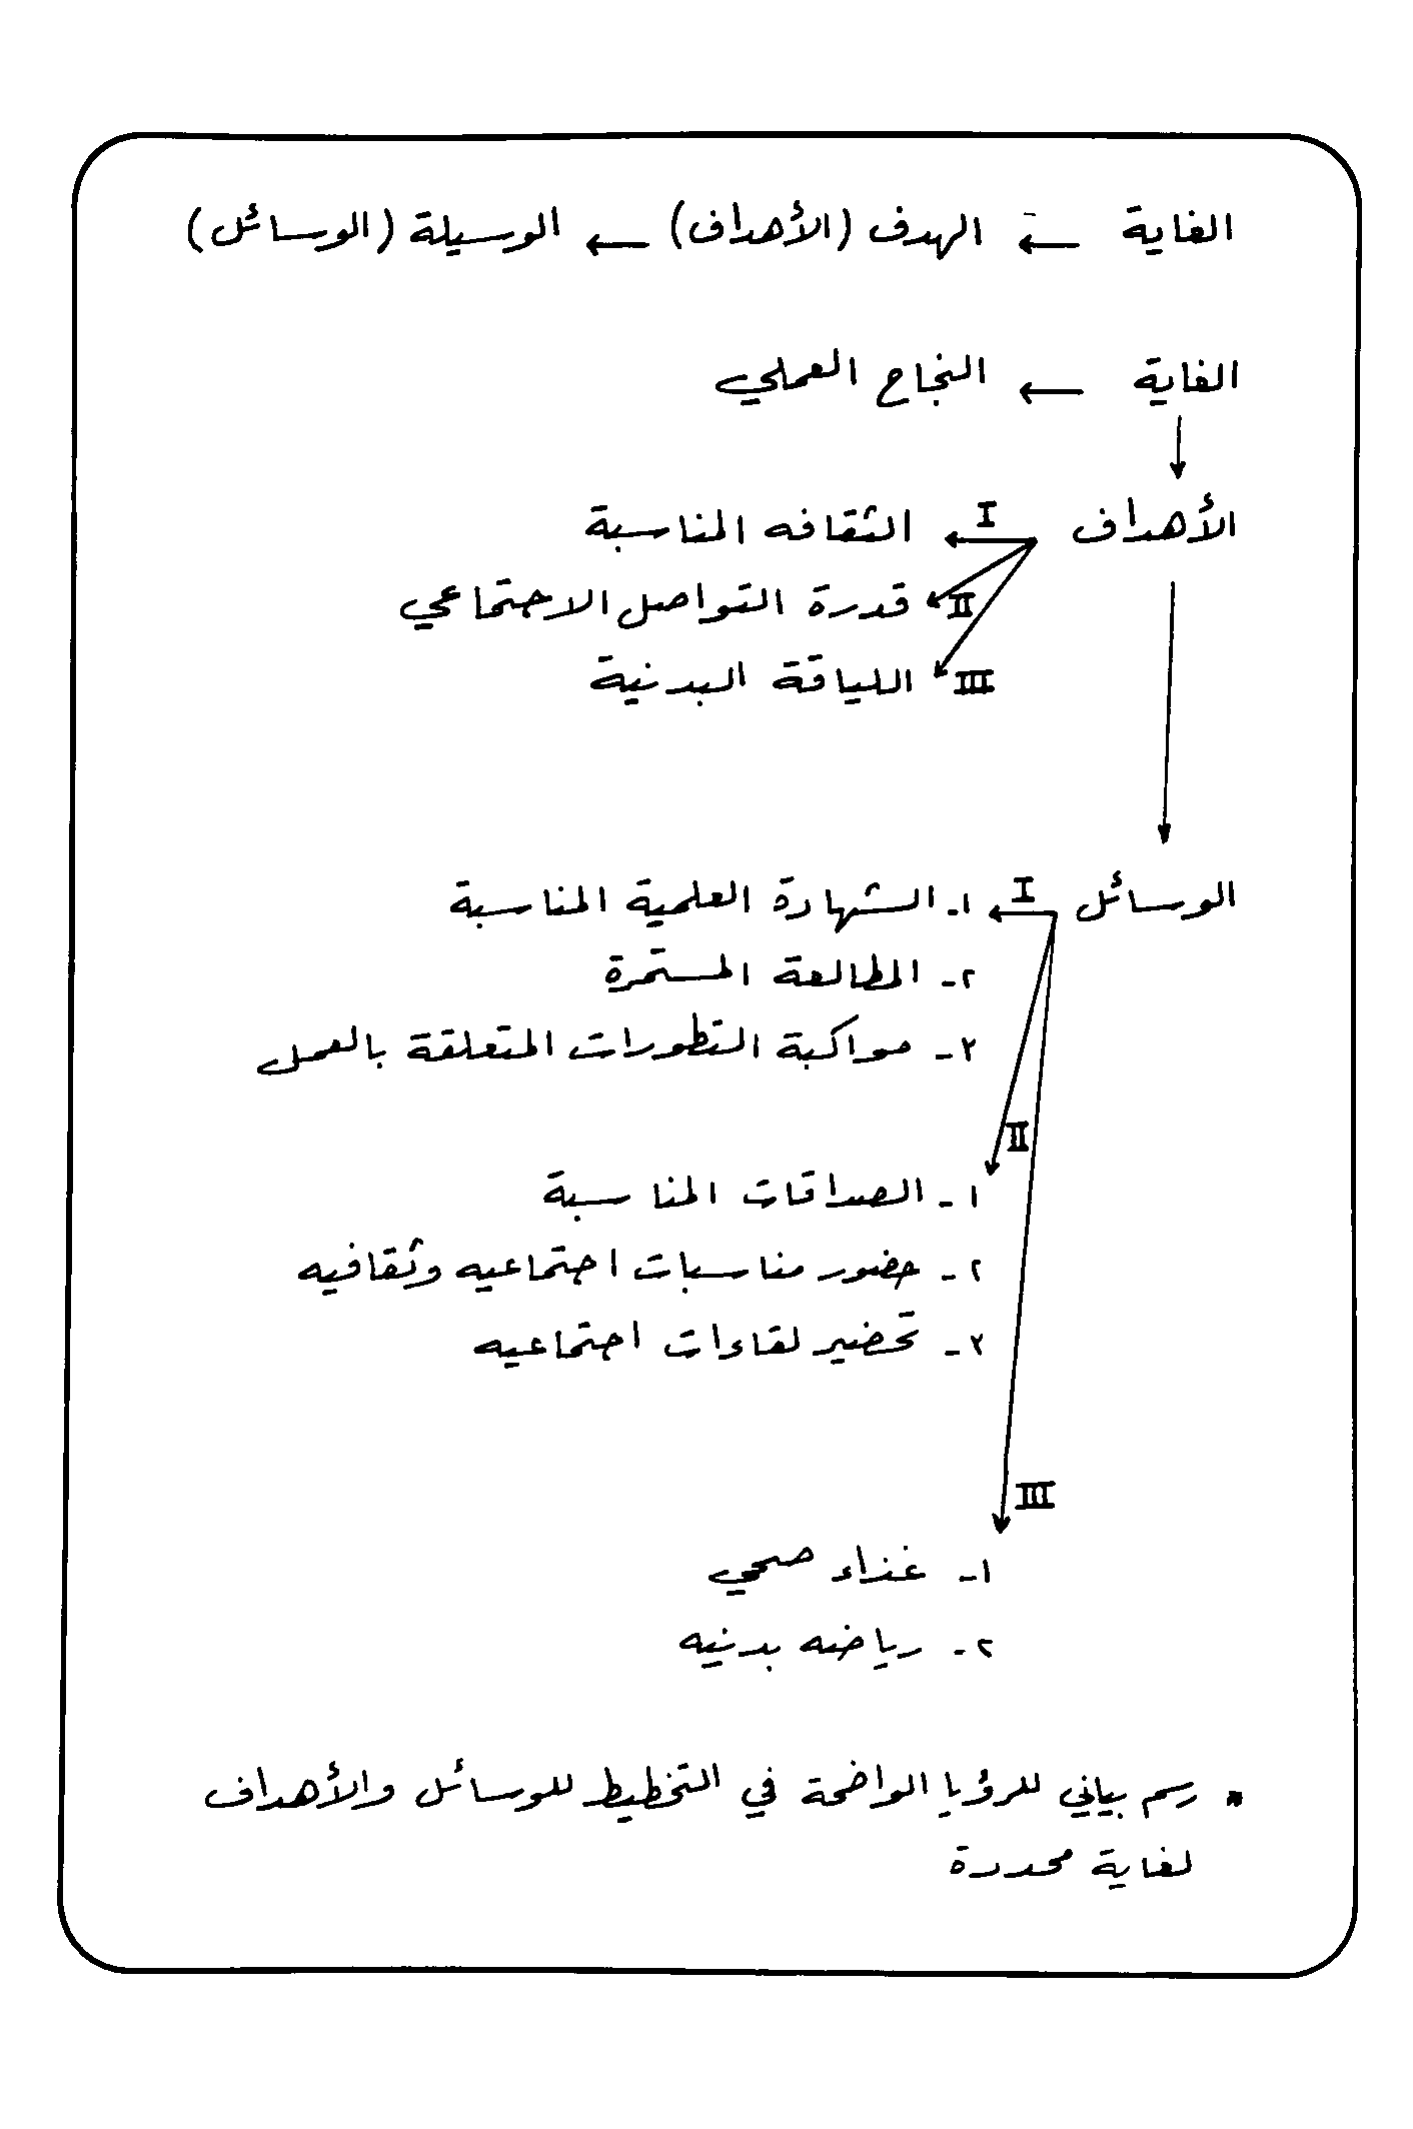 الغاية ← الهدف (الأهداف) ← الوسيلة (الوسائل)
الغاية ← النجاح العملي
الأهداف I الثقافه المناسبة
II قدرة التواصل الاجتماعي
III اللياقة البدنية
الوسائل I ١ـ الشهادة العلمية المناسبة
٢ـ المطالعة المستمرة
٣ـ مواكبة التطورات المتعلقة بالعمل
II
١ـ الصداقات المناسبة
٢ـ حضور مناسبات اجتماعيه وثقافيه
٣ـ تحضير لقاءات اجتماعيه
III
١ـ غذاء صحي
٢ـ رياضه بدنيه
* رسم بياني للرؤيا الواضحة في التخطيط للوسائل والأهداف
لغاية محددة